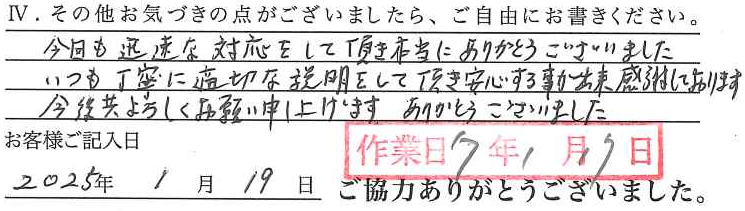 Ⅳ．その他お気づきの点がございましたら、ご自由にお書きください。
今回も迅速な対応をして頂き本当にありがとうございました
いつも丁寧に適切な説明をして頂き安心する事が出来感謝しております
今後共よろしくお願い申し上げます ありがとうございました
お客様ご記入日
作業日 7年1月17日
2025年 1月19日 ご協力ありがとうございました。